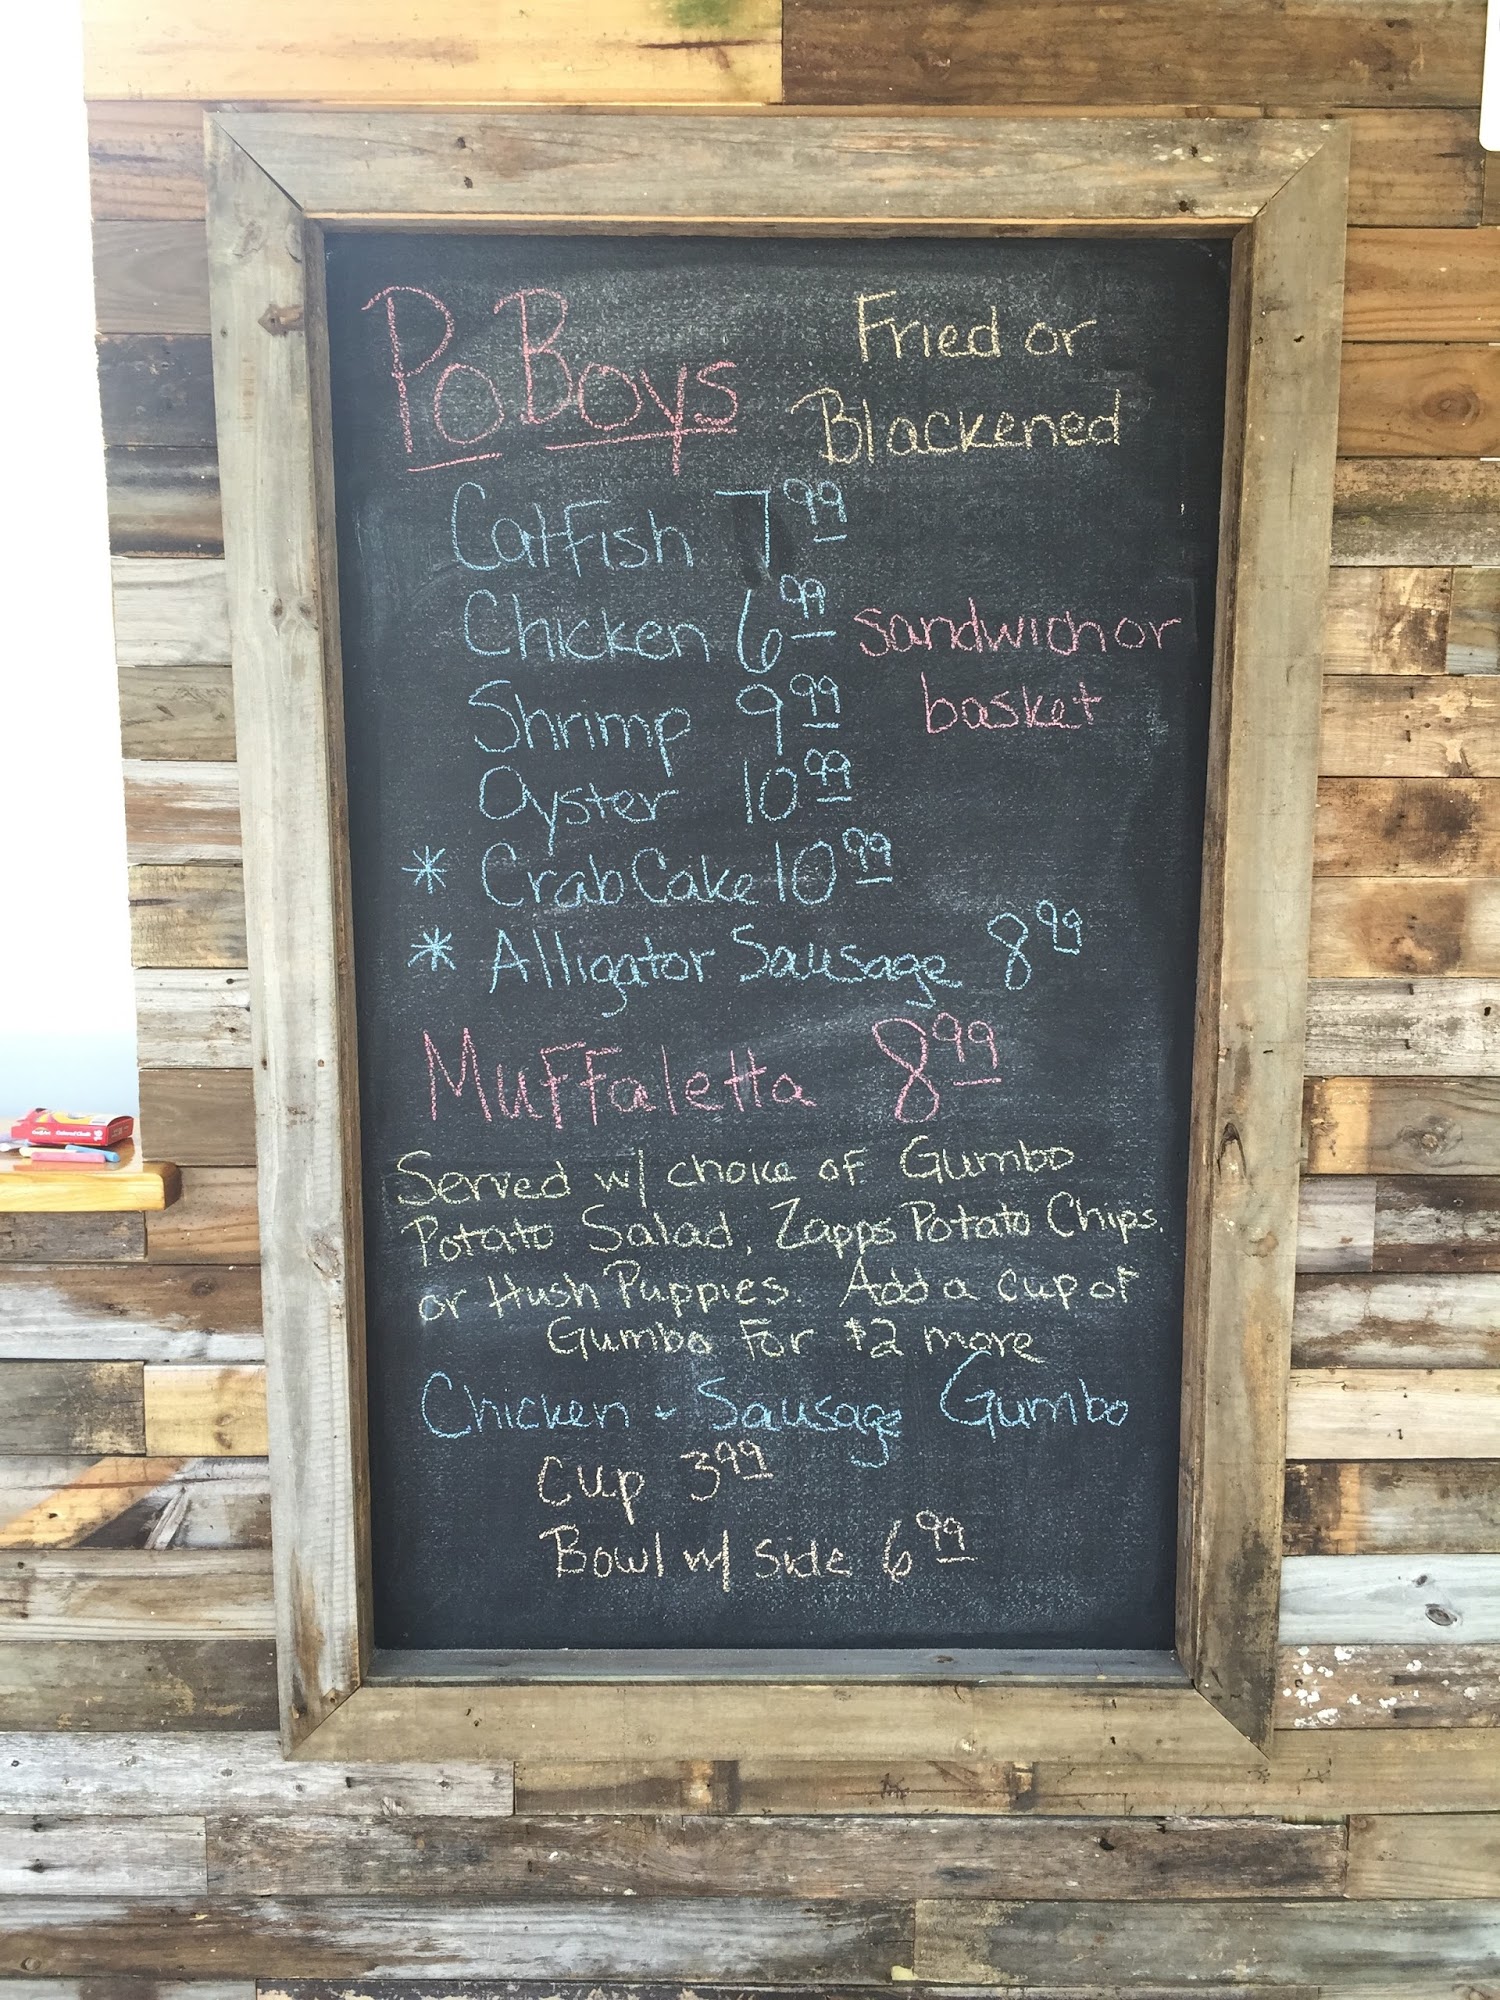 Po Boys
Fried or
Blackened
Catfish 7.99
Chicken 6.99
sandwich or
basket
Shrimp 9.99
Oyster 10.99
* Crab Cake 10.99
* Alligator Sausage 8.99
Muffaletta 8.99
Served w/ choice of Gumbo
Potato Salad, Zapps Potato Chips.
or Hush Puppies. Add a cup of
Gumbo For $2 more
Chicken - Sausage Gumbo
Cup 3.99
Bowl w/ side 6.99
Colored Chalk